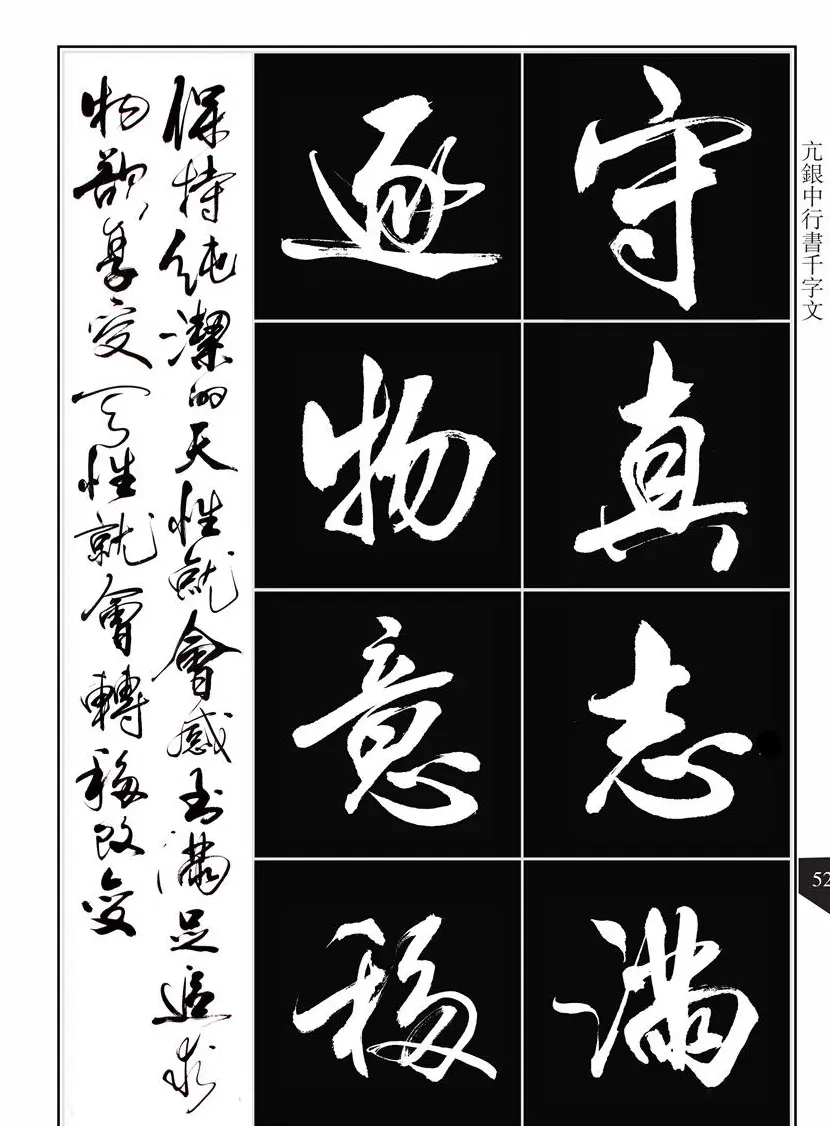 亢銀中行書千字文
守真志滿
逐物意移
保持純潔的天性就會感到滿足追求
物欲享受天性就會轉移改變
52